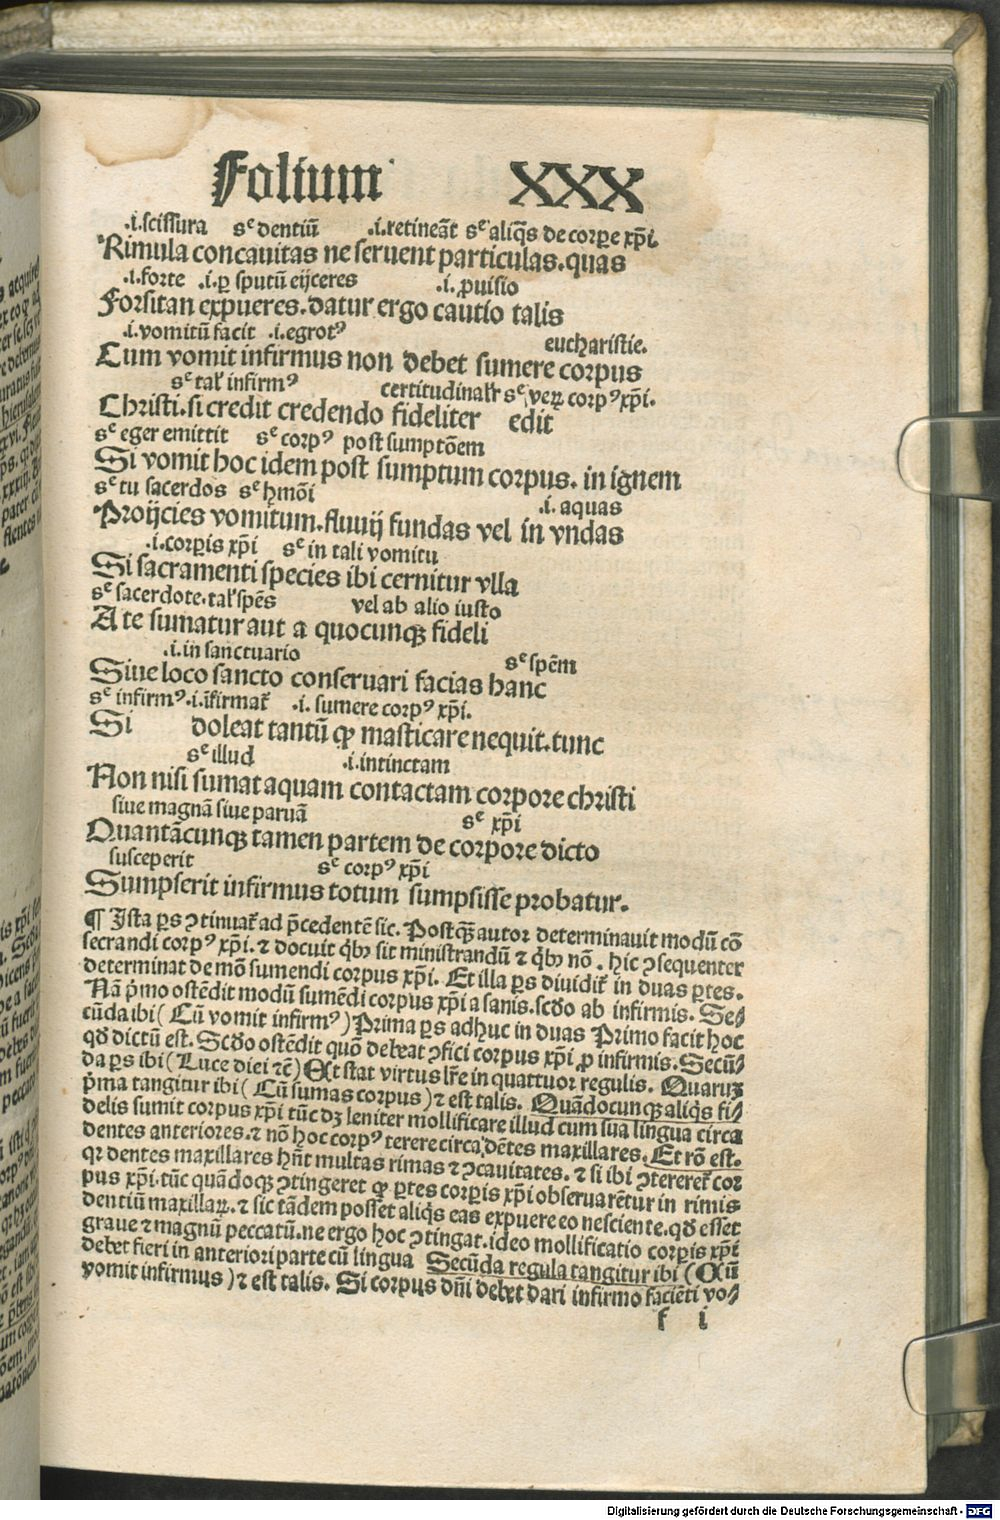 Folium XXX
.i.scissura sᵉ dentiū .i.retineāt sᵉ aliqͥs de corꝑe xp̄i.
Rimula concauitas ne seruent particulas.quas
.i.forte .i.ꝑ sputū eijceres .i.ꝓuisio
Forsitan expueres.datur ergo cautio talis
.i.vomitū facit .i.egrotꝰ eucharistie.
Cum vomit infirmus non debet sumere corpus
sᵉ tal' infirmꝰ certitudinalr̄ sᵉ veꝝ corpꝰ xp̄i.
Christi.si credit credendo fideliter edit
sᵉ eger emittit sᵉ corpꝰ post sumptōem
Si vomit hoc idem post sumptum corpus. in ignem
sᵉ tu sacerdos sᵉ hm̄oi .i. aquas
Proijcies vomitum.fluuij fundas vel in vndas
.i.corꝑis xp̄i sᵉ in tali vomitu
Si sacramenti species ibi cernitur vlla
sᵉ sacerdote.tal' spēs vel ab alio iusto
A te sumatur aut a quocunqꝫ fideli
.i.in sanctuario sᵉ spēm
Siue loco sancto conseruari facias hanc
sᵉ infirmꝰ.i.īfirmat̄ .i. sumere corpꝰ xp̄i.
Si doleat tantū ꝙ masticare nequit.tunc
sᵉ illud .i.intinctam
Non nisi sumat aquam contactam corpore christi
siue magnā siue paruā sᵉ xp̄i
Quantācunqꝫ tamen partem de corpore dicto
susceperit sᵉ corpꝰ xp̄i
Sumpserit infirmus totum sumpsisse probatur.
¶ Ista ꝑs ↄtinuat̄ ad p̄cedentē sic. Postqꝫ autor determinauit modū cō
secrandi corpꝰ xp̄i. ⁊ docuit qͥbꝫ sit ministrandū ⁊ qͥbꝫ nō. hic ↄsequenter
determinat de mō sumendi corpus xp̄i. Et illa ꝑs diuidit̄ in duas ꝑtes.
Nā pͥmo ostēdit modū sumēdi corpus xp̄i a sanis.scd̄o ab infirmis. Se⸗
cūda ibi (Cū vomit infirmꝰ) Prima ꝑs adhuc in duas Primo facit hoc
qd̄ dictū est. Scd̄o ostēdit quō debeat ↄfici corpus xp̄i ꝓ infirmis. Secū⸗
da ꝑs ibi (Luce diei ⁊c̄) Et stat virtus lr̄e in quattuor regulis. Quaruꝫ
pͥma tangitur ibi (Cū sumas corpus) ⁊ est talis. Quādocunqꝫ aliqͥs fi⸗
delis sumit corpus xp̄i tūc dꝫ leniter mollificare illud cum sua lingua circa
dentes anteriores.⁊ nō hoc corpꝰ terere circa dētes maxillares. Et rō est.
qꝛ dentes maxillares hn̄t multas rimas ⁊ ↄcauitates. ⁊ si ibi ↄtereret̄ cor
pus xp̄i.tūc quādoqꝫ ↄtingeret ꝙ ꝑtes corꝑis xp̄i obseruarētur in rimis
dentiū maxillaꝝ. ⁊ sic tādem posset aliqͥs eas expuere eo nesciente.qd̄ esset
graue ⁊ magnū peccatū.ne ergo hoc ↄtingat.ideo mollificatio corꝑis xp̄i
debet fieri in anteriori parte cū lingua Secūda regula tangitur ibi (Cū
vomit infirmus) ⁊ est talis. Si corpus dn̄i debet dari infirmo faciēti vo⸗
f i
Digitalisierung gefördert durch die Deutsche Forschungsgemeinschaft - DFG